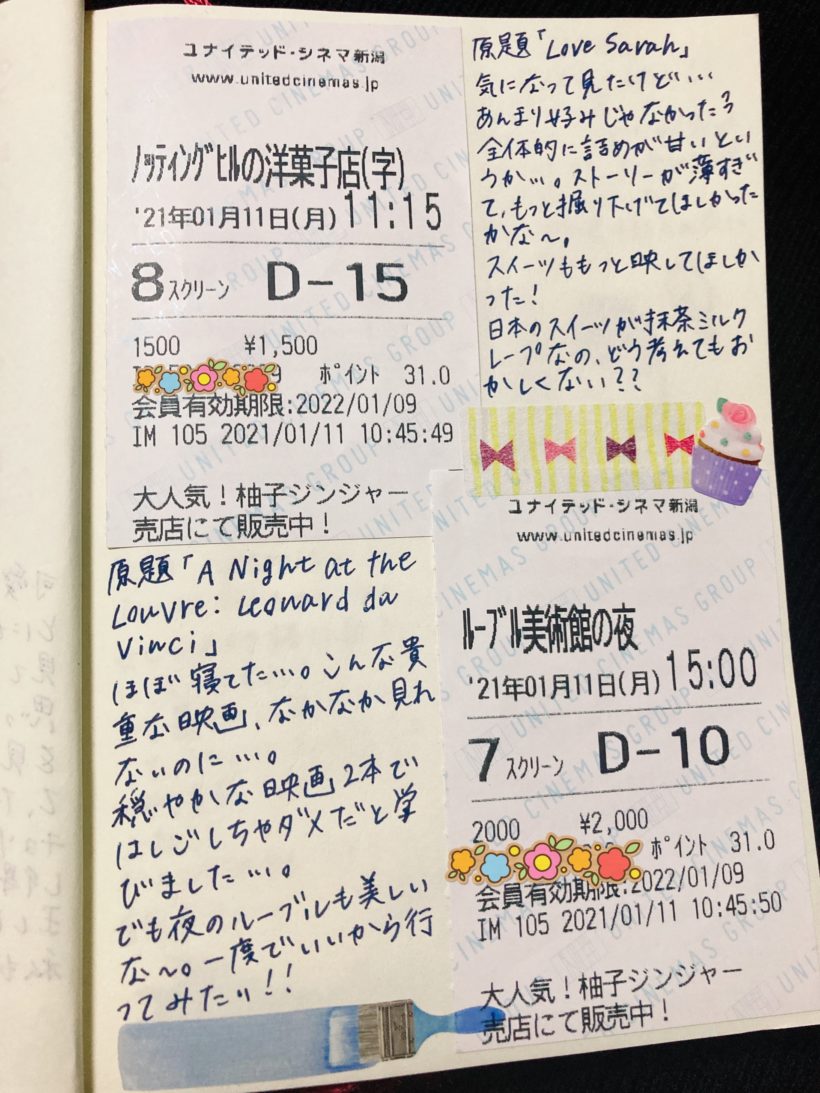 ユナイテッド・シネマ新潟
www.unitedcinemas.jp
ノッティングヒルの洋菓子店(字)
'21年01月11日(月) 11:15
8スクリーン D-15
1500 ¥1,500
ポイント 31.0
会員有効期限:2022/01/09
IM 105 2021/01/11 10:45:49
大人気!柚子ジンジャー
売店にて販売中!
原題「Love Sarah」
気になって見たけど…
あんまり好みじゃなかった?
全体的に詰めが甘いとい
うか…。ストーリーが薄すぎ
て、もっと掘り下げてほしかった
かな〜。
スイーツももっと映してほしか
った!
日本のスイーツが抹茶ミルク
レープなの、どう考えてもお
かしくない??
原題「A Night at the
Louvre: Leonard da
Vinci」
ほぼ寝てた…。こんな貴
重な映画、なかなか見れ
ないのに…。
穏やかな映画2本で
はしごしちゃダメだと学
びました…。
でも夜のルーブルも美しい
な〜。一度でいいから行
ってみたい!!
ユナイテッド・シネマ新潟
www.unitedcinemas.jp
ルーブル美術館の夜
'21年01月11日(月) 15:00
7スクリーン D-10
2000 ¥2,000
ポイント 31.0
会員有効期限:2022/01/09
IM 105 2021/01/11 10:45:50
大人気!柚子ジンジャー
売店にて販売中!